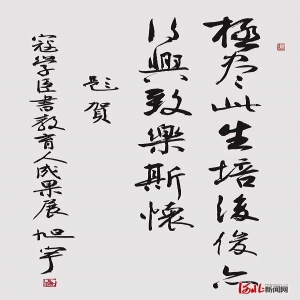 極尽此生培後俊亦
以興致樂斯懷
题賀
寇学臣書教育人成果展 旭宇
河北新闻网